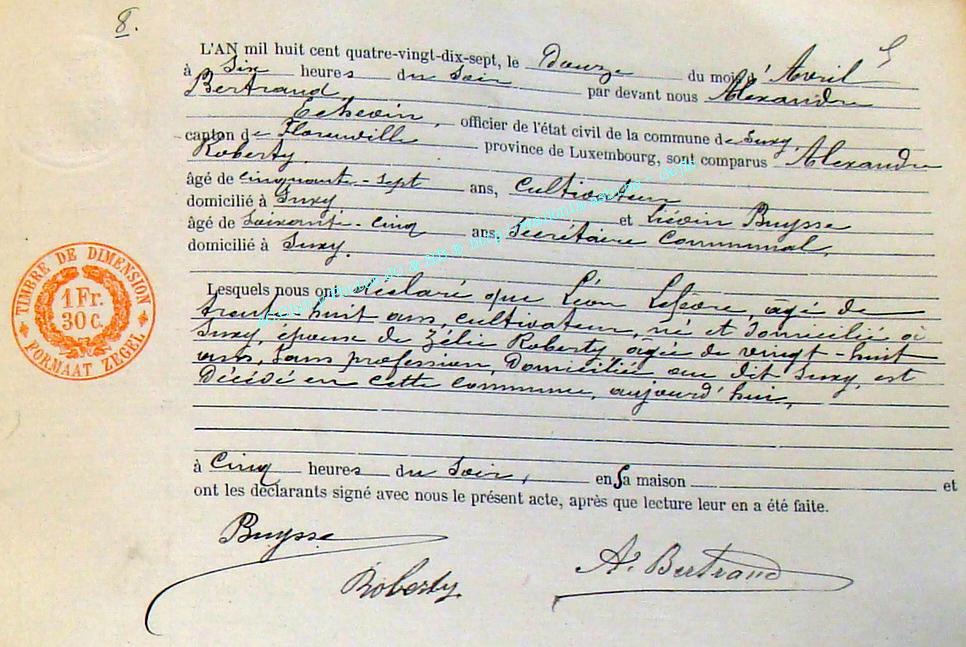 8.
L'AN mil huit cent quatre-vingt-dix-sept, le Douze du mois d'Avril
à Six heures du Soir par devant nous Alexandre
Bertrand
Echevin, officier de l'état civil de la commune de Suxy,
canton de Florenville province de Luxembourg, sont comparus Alexandre
Roberty.
âgé de cinquante-sept ans, Cultivateur
domicilié à Suxy et Liévin Buysse
âgé de Soixante-Cinq ans, Secrétaire Communal,
domicilié à Suxy.
Lesquels nous ont déclaré que Léon Lefevre, âgé de
trente-huit ans, cultivateur, né et domicilié à
Suxy, époux de Zélie Roberty âgée de vingt-huit
ans, sans profession, domiciliée au dit Suxy, est
Décédé en cette commune, aujourd'hui,
à Cinq heures du Soir, en sa maison et
ont les déclarants signé avec nous le présent acte, après que lecture leur en a été faite.
Buysse
Roberty
A. Bertrand
TIMBRE DE DIMENSION
1 Fr.
30 C.
FORMAAT ZEGEL